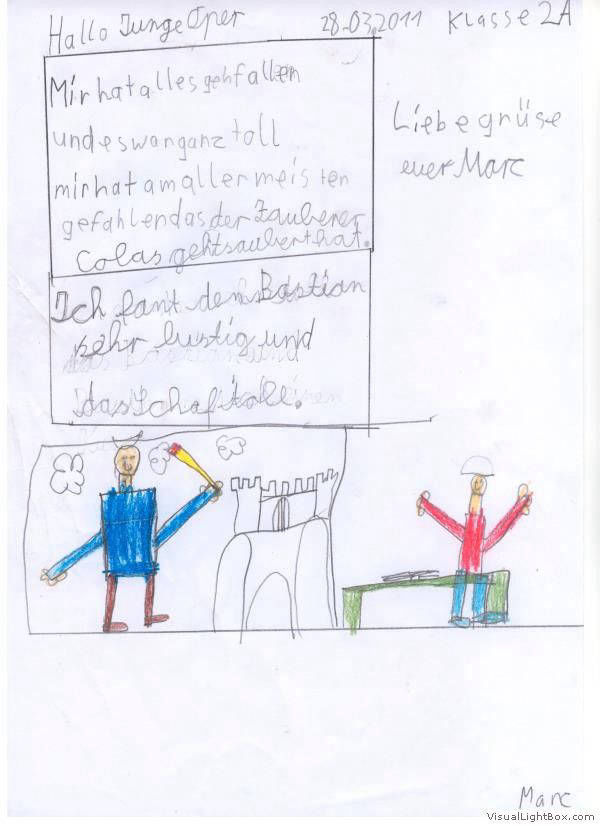 Hallo Junge Oper 28.03.2011 Klasse 2A
Mir hat alles gehfallen
und es war ganz toll
mir hat am aller meisten
gefahlen das der Zauberer
Colas gehtsaubert hat.
Ich fant den Bastian
sehr lustig und
das Schaf toll.
Liebe grüse
euer Marc
Marc
VisualLightBox.com